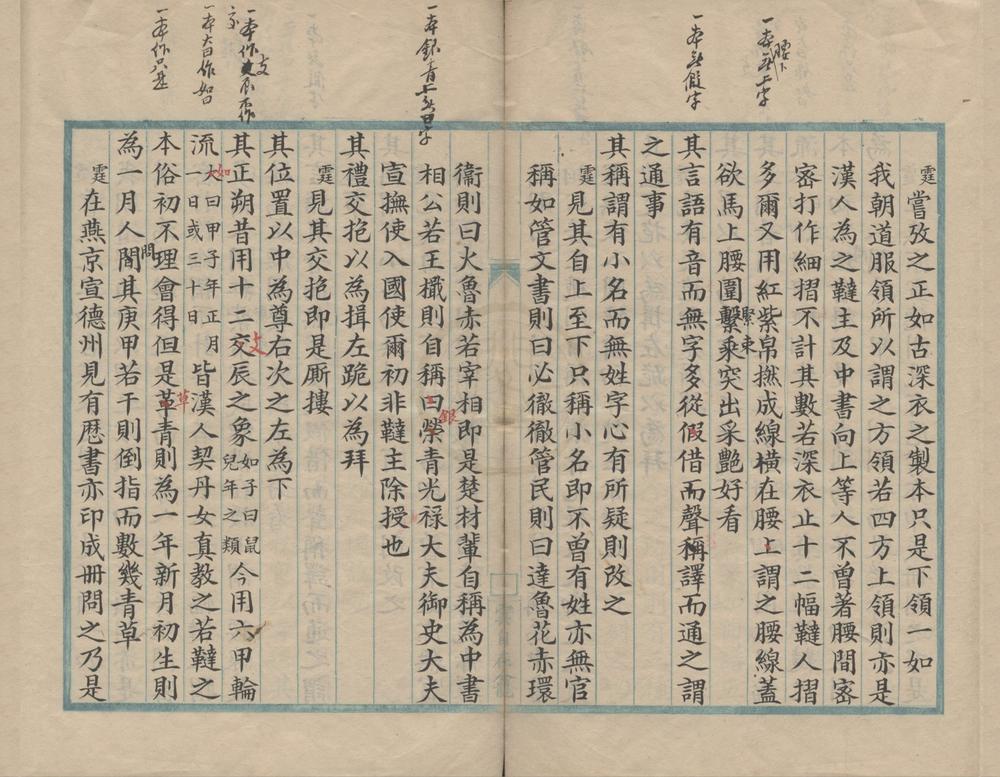 一本無上字
腰下
一本無假字
一本銀青上無曰字
一本作支
一本大曰作如曰
一本作只是
霆嘗攷之正如古深衣之製本只是下領一如
我朝道服領所以謂之方領若四方上領則亦是
漢人為之韃主及中書向上等人不曾著腰間密
密打作細摺不計其數若深衣止十二幅韃人摺
多爾又用紅紫帛撚成線橫在腰上謂之腰線蓋
欲馬上腰圍繫乘突出采艷好看
緊束
其言語有音而無字多從假借而聲稱譯而通之謂
之通事
其稱謂有小名而無姓字心有所疑則改之
霆見其自上至下只稱小名即不曾有姓亦無官
稱如管文書則曰必徹徹管民則曰達魯花赤環
衞則曰火魯赤若宰相即是楚材輩自稱為中書
相公若王檝則自稱曰榮青光祿大夫御史大夫
銀
宣撫使入國使爾初非韃主除授也
其禮交抱以為揖左跪以為拜
霆見其交抱即是厮摟
其位置以中為尊右次之左為下
其正朔昔用十二交辰之象如子曰鼠兒年之類今用六甲輪
支
流大曰甲子年正月一日或三十日皆漢人契丹女真教之若韃之
如
本俗初不理會得但是革青則為一年新月初生則
草
為一月人閽其庚甲若干則倒指而數幾青草
問
霆在燕京宣德州見有曆書亦印成冊問之乃是